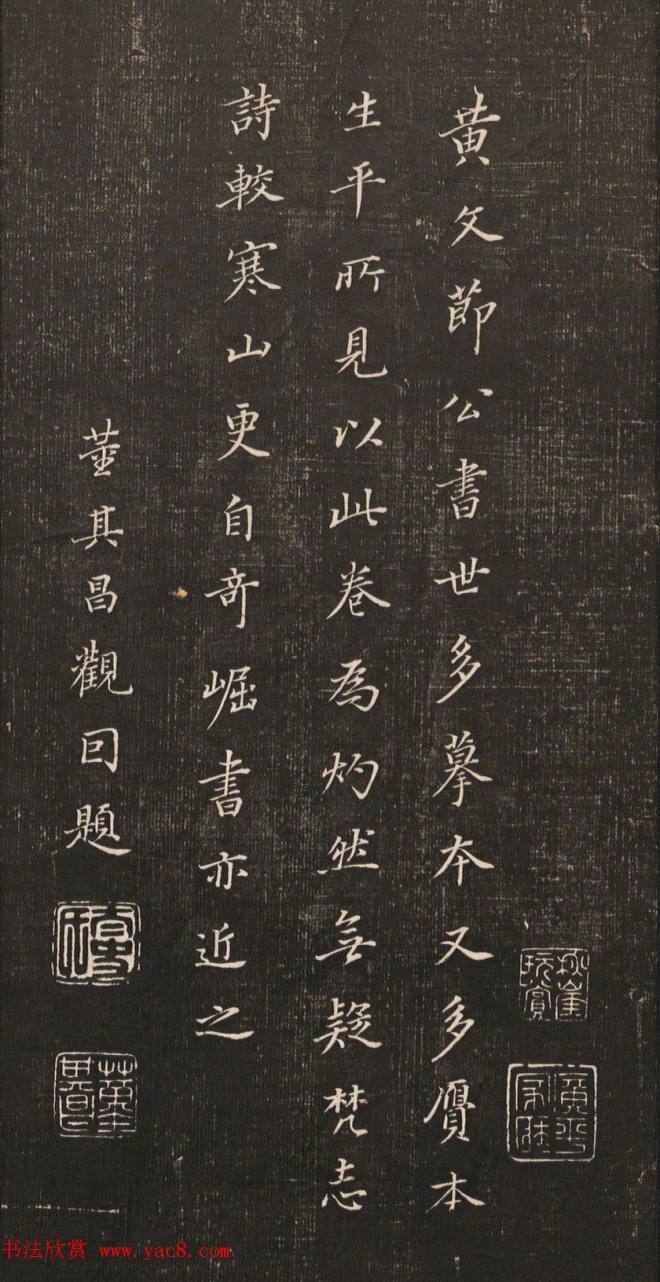 黃文節公書世多摹本又多贋本
生平所見以此卷為灼然無疑梵志
詩較寒山更自奇崛書亦近之
董其昌觀囙題
秋崖玩賞
書法欣赏 www.yac8.com